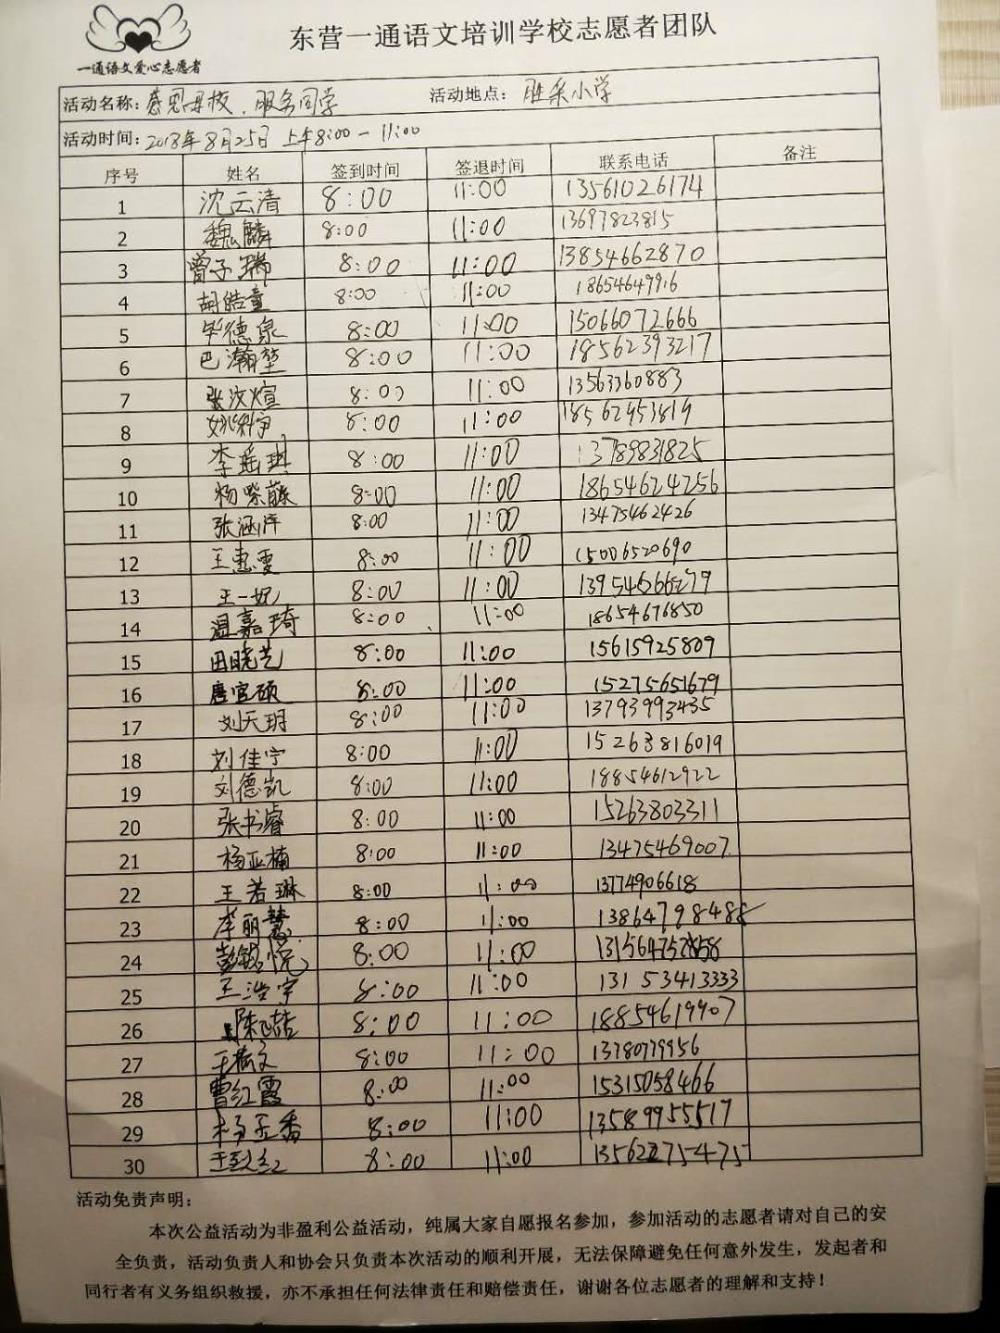 一通语文爱心志愿者
东营一通语文培训学校志愿者团队
活动名称：感恩母校、服务同学 活动地点： 胜采小学
活动时间：2018年8月25日 上午8:00-11:00
序号 姓名 签到时间 签退时间 联系电话 备注
1 沈云清 8:00 11:00 13561026174
2 魏麟 8:00 11:00 13697823815
3 曾子瑞 8:00 11:00 13854662870
4 胡皓童 8:00 11:00 18654649916
5 毕德泉 8:00 11:00 15066072666
6 巴瀚堃 8:00 11:00 18562393217
7 张汶煊 8:00 11:00 13563360883
8 8:00 11:00 18562953819
9 李瑶琪 8:00 11:00 13789831825
10 杨紫藤 8:00 11:00 18654624256
11 张涵洋 8:00 11:00 13475462426
12 王惠雯 8:00 11:00 15006520690
13 王一妃 8:00 11:00
14 温嘉琦 8:00 11:00 18654676850
15 田晓艺 8:00 11:00 15615925809
16 唐官硕 8:00 11:00 15275651679
17 刘天玥 8:00 11:00 13793993435
18 刘佳宁 8:00 11:00 15263816019
19 刘德凯 8:00 11:00 18854612922
20 张书睿 8:00 11:00 15263803311
21 杨亚楠 8:00 11:00 13475469007
22 王若琳 8:00 11:00 13774906618
23 李丽慧 8:00 11:00
24 8:00 11:00
25 王浩宇 8:00 11:00 13153413333
26 8:00 11:00 18854619907
27 8:00 11:00 13780779956
28 曹红霞 8:00 11:00 15315058466
29 8:00 11:00 13589955517
30 8:00 11:00
活动免责声明：
本次公益活动为非盈利公益活动，纯属大家自愿报名参加，参加活动的志愿者请对自己的安
全负责，活动负责人和协会只负责本次活动的顺利开展，无法保障避免任何意外发生，发起者和
同行者有义务组织救援，亦不承担任何法律责任和赔偿责任，谢谢各位志愿者的理解和支持！